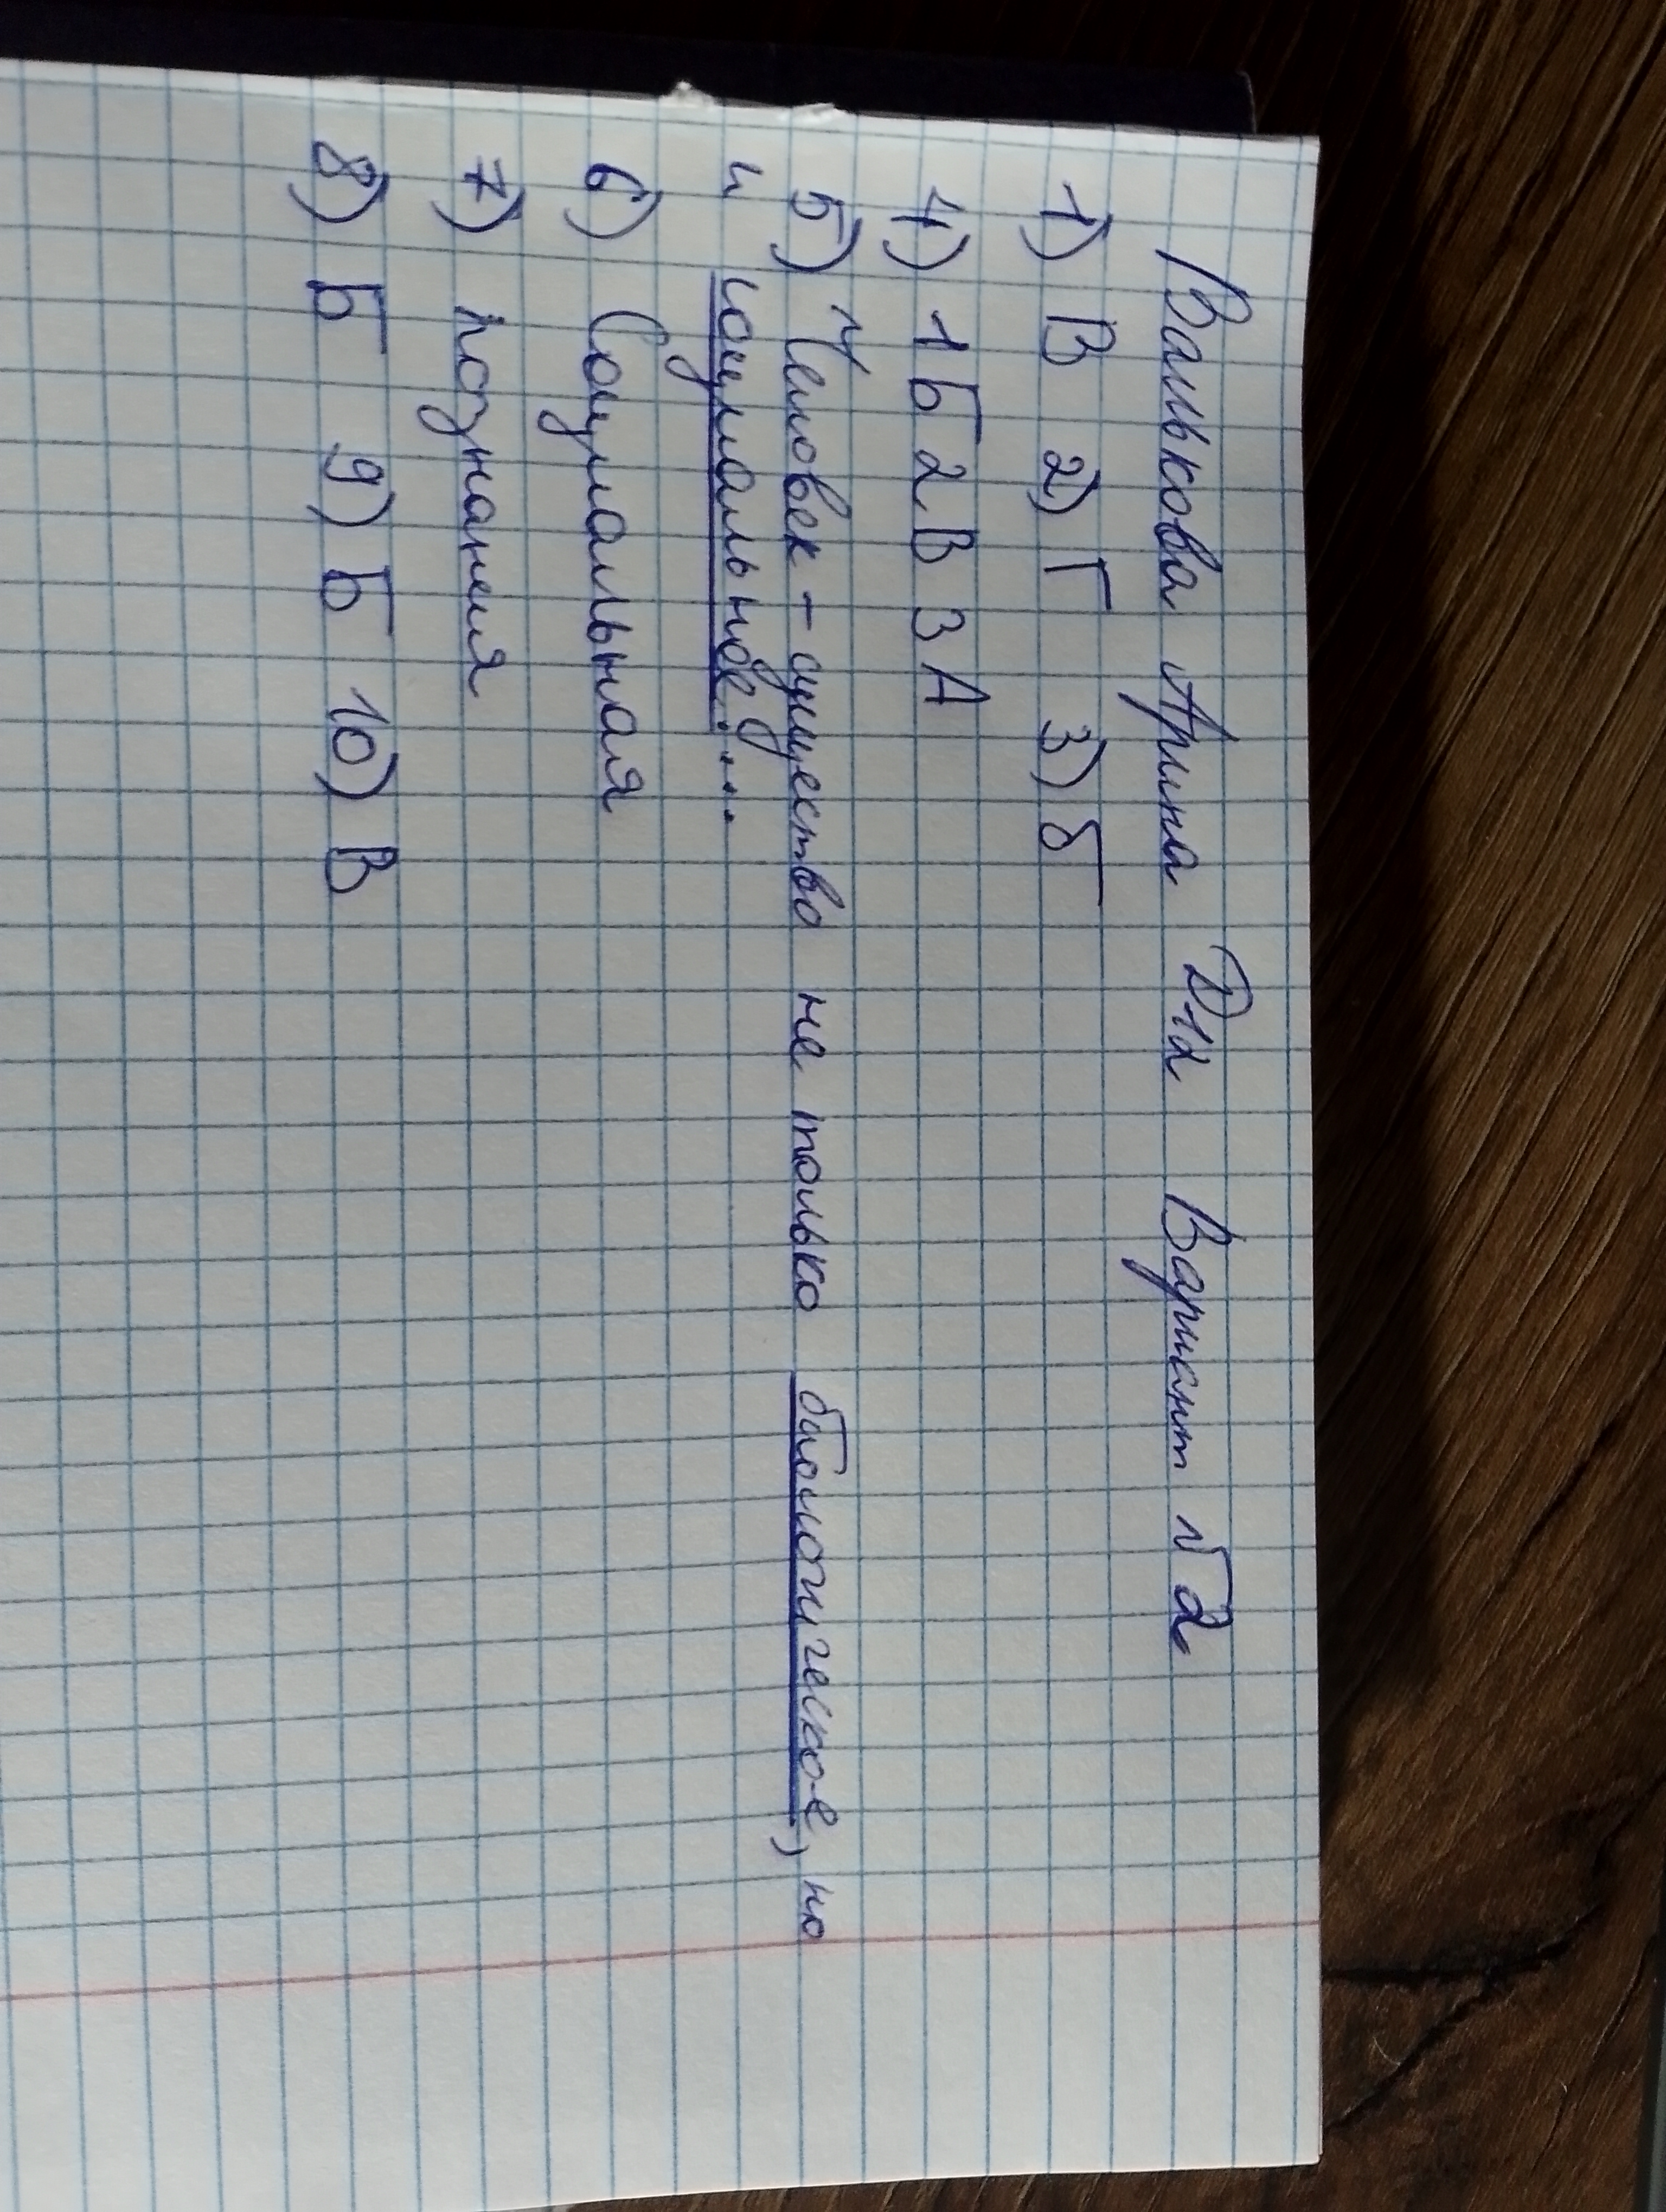 Валькова Арина Д12 Вариант №2
1) В 2) Г 3) б
4) 1Б 2В 3А
5) Человек - существо не только биологическое, но
и социальное....
6) Социальная
7) познания
8) Б 9) Б 10) В